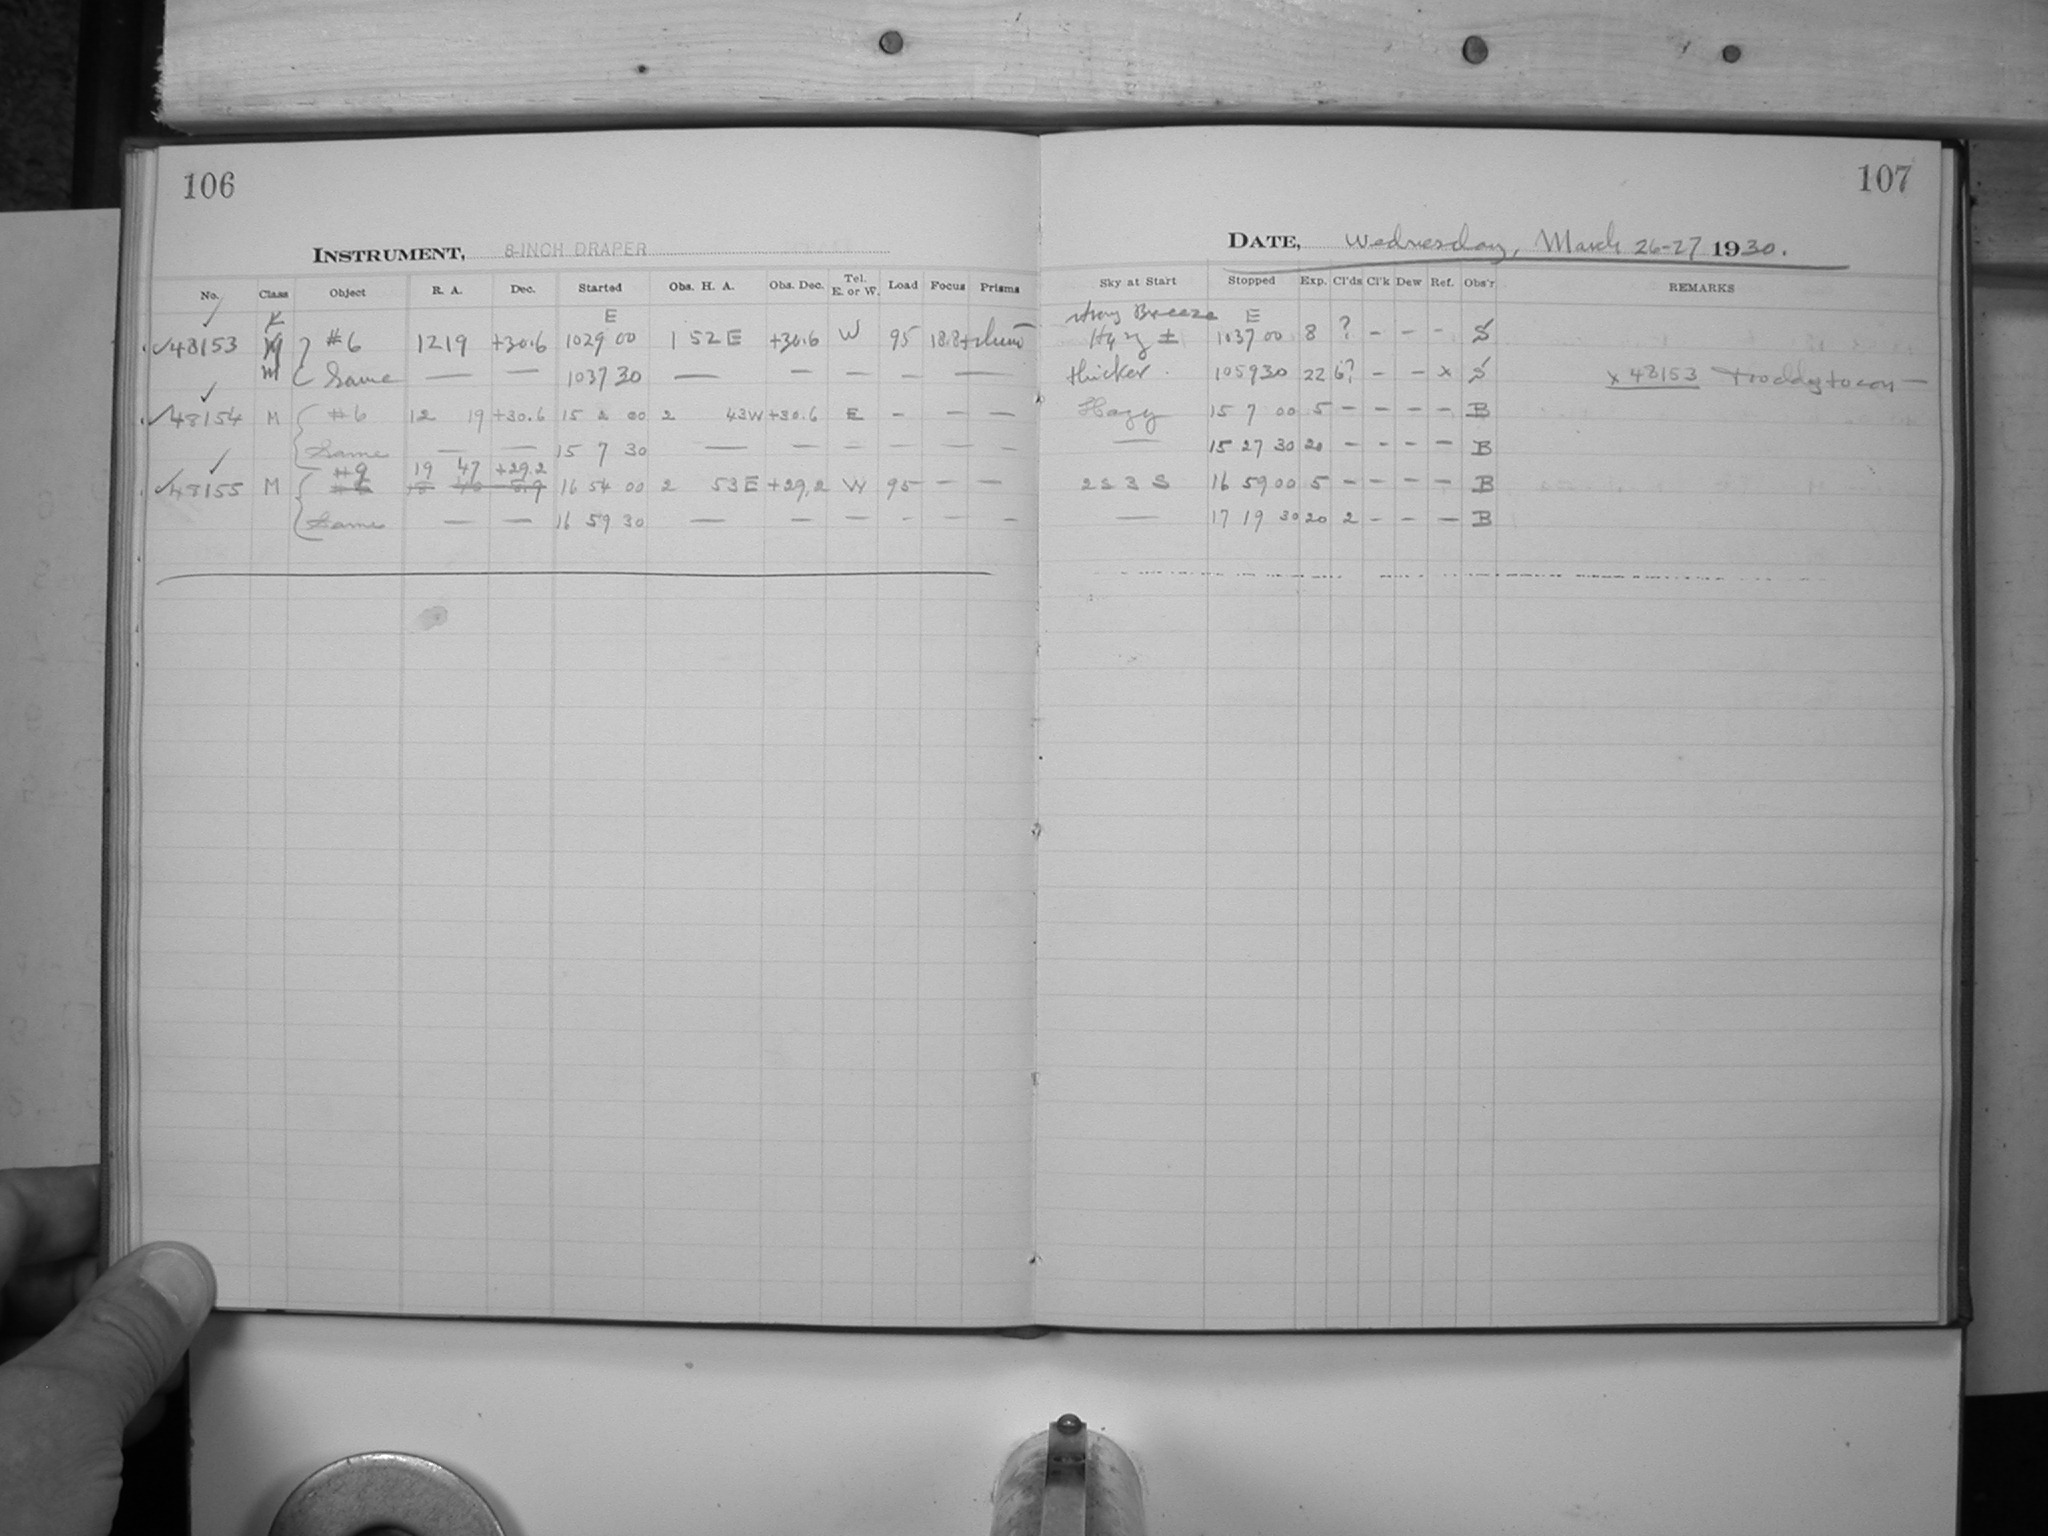 106
INSTRUMENT, 8-INCH DRAPER
No. Class Object R. A. Dec. Started Obs. H. A. Obs. Dec. Tel. E. or W. Load Focus Prisms
K E
48153 #6 1219 +30.6 1029 00 1 52 E +30.6 W 95 18.8
M Same — — 1037 30 — — — — —
48154 M #6 12 19 +30.6 15 2 00 2 43W +30.6 E - - -
Same — — 15 7 30 — — — - - -
#9 19 47 +29.2
48155 M 16 54 00 2 53 E +29.2 W 95 - — -
Same — — 16 59 30 — — — - - -
107
DATE, Wednesday, March 26-27 1930.
Sky at Start Stopped Exp. Cl'ds Cl'k Dew Ref. Obs'r REMARKS
Strong Breeze E
Hazy ± 1037 00 8 ? - - - S
thicker. 1059 30 22 6? - - x S x 48153
Hazy 15 7 00 5 - - - - B
— 15 27 30 20 - - - - B
2 S 3 S 16 59 00 5 - - - - B
— 17 19 30 20 2 - - - B